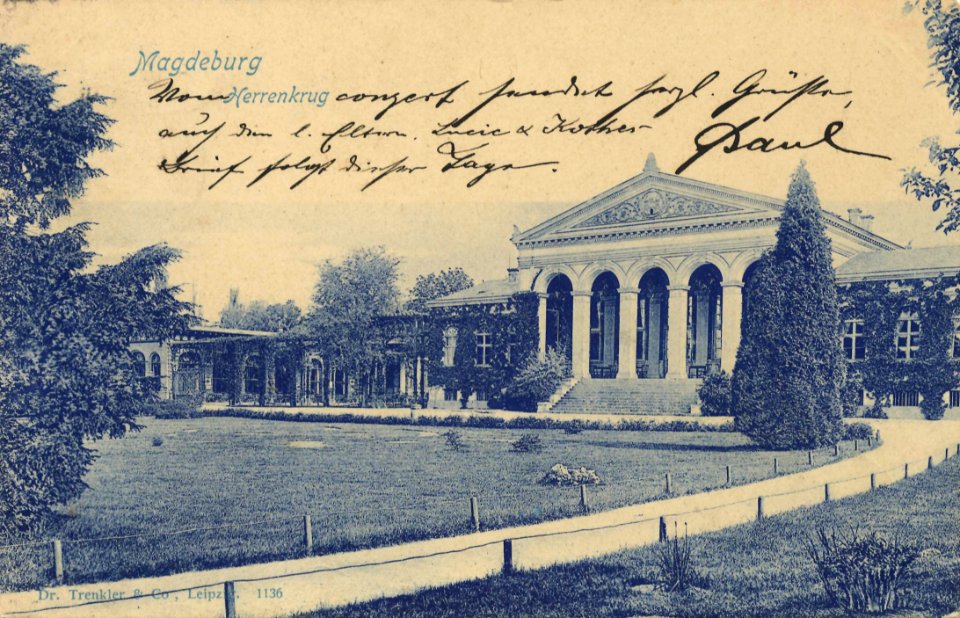 Magdeburg
Vom Herrenkrug conzert sendet herzl. Grüsse,
auch den l. Eltern, Lucie & Kother
Paul
Brief folgt dieser Tage.
Dr. Trenkler & Co., Leipzig. 1136